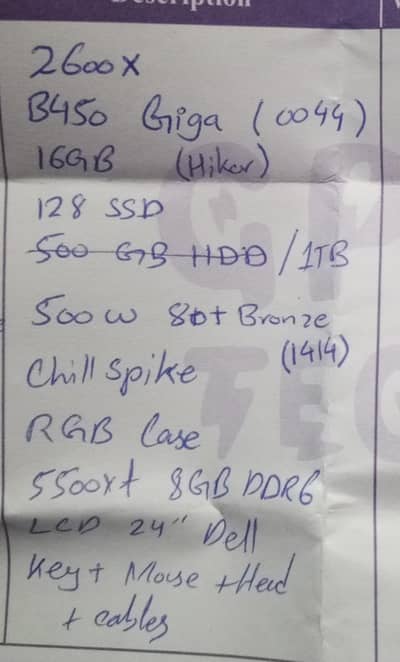 Description
2600x
B450 Giga (0044)
16GB (Hiker)
128 SSD
500 GB HDD / 1TB
500w 80+ Bronze
(1414)
Chill Spike
RGB Case
5500xt 8GB DDR6
LCD 24" Dell
Key + Mouse + Head
+ cables
GP
TEC